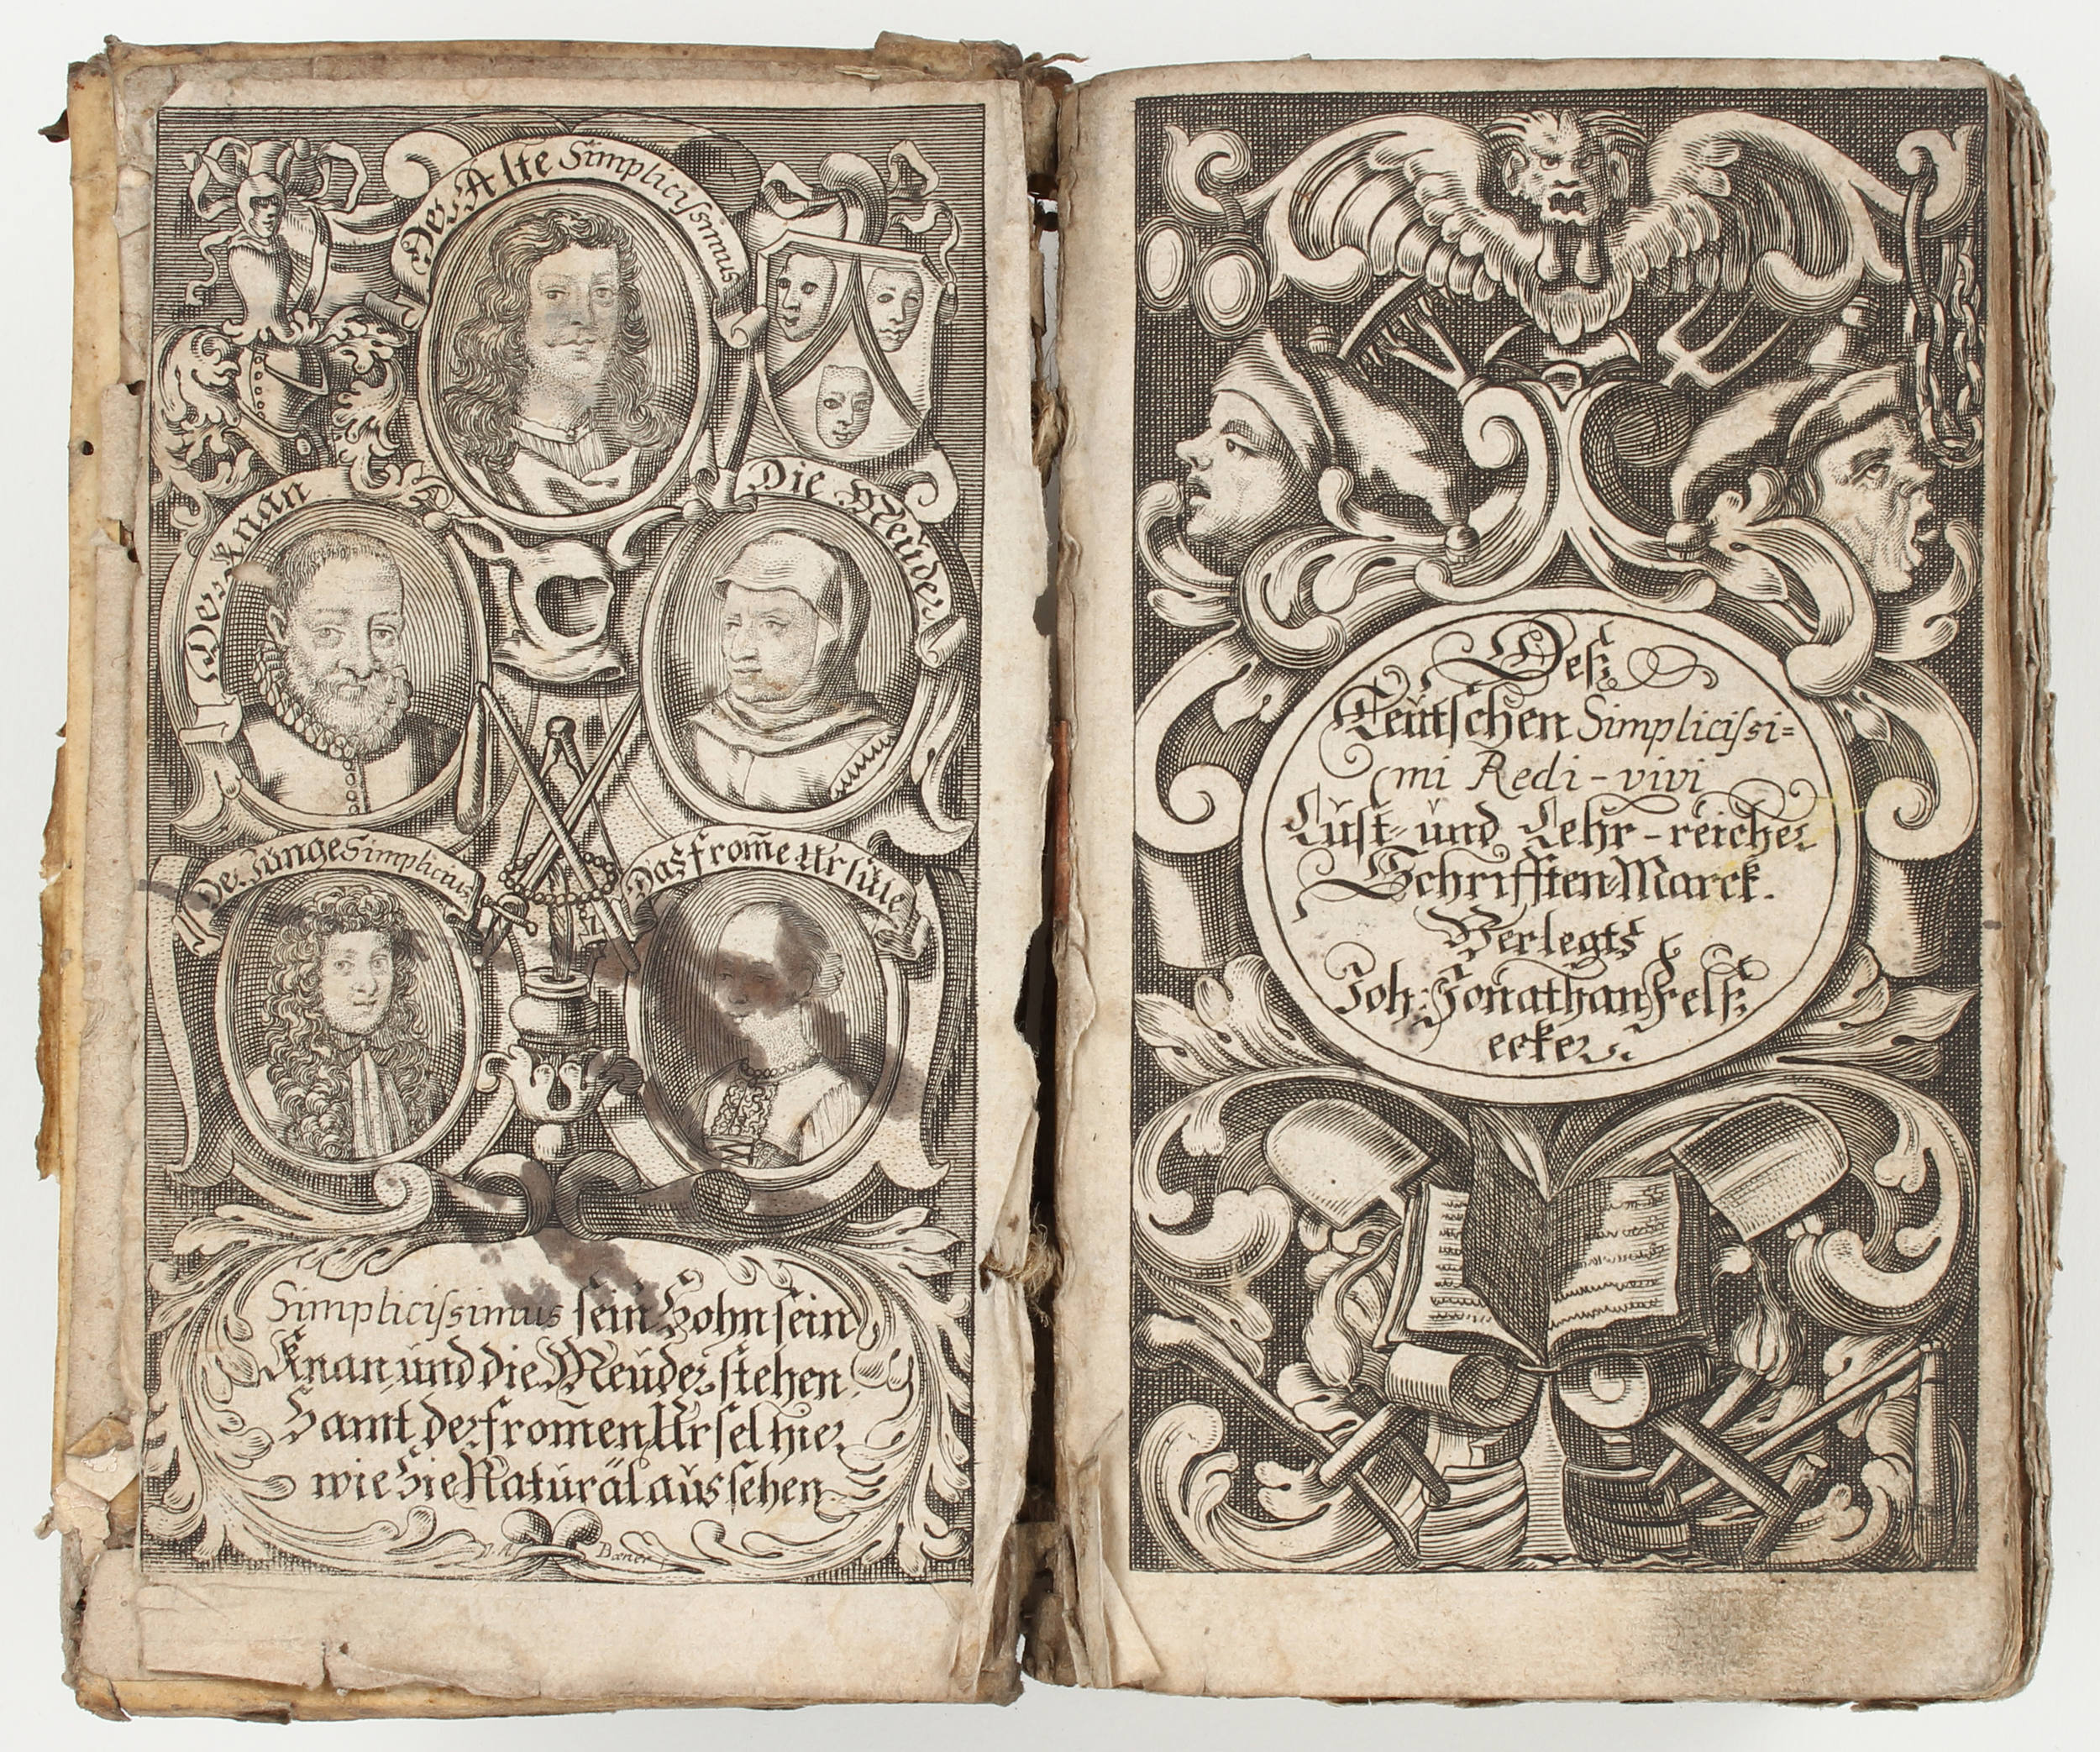 Der Alte Simplicissimus
Der Knan
Die Meuder
Der Junge Simplicius
Das from̄e Ursüle
Simplicissimus sein Sohn sein
Knan und die Meuder stehen
Samt der from̄en Ursel hier
wie Sie Natural aussehen
Boener
Deß
Teutschen Simplicissi=
mi Redi-vivi
Lust- und Lehr-reicher
Schrifften Marck.
Verlegts
Joh: Jonathan Felß
ecker.